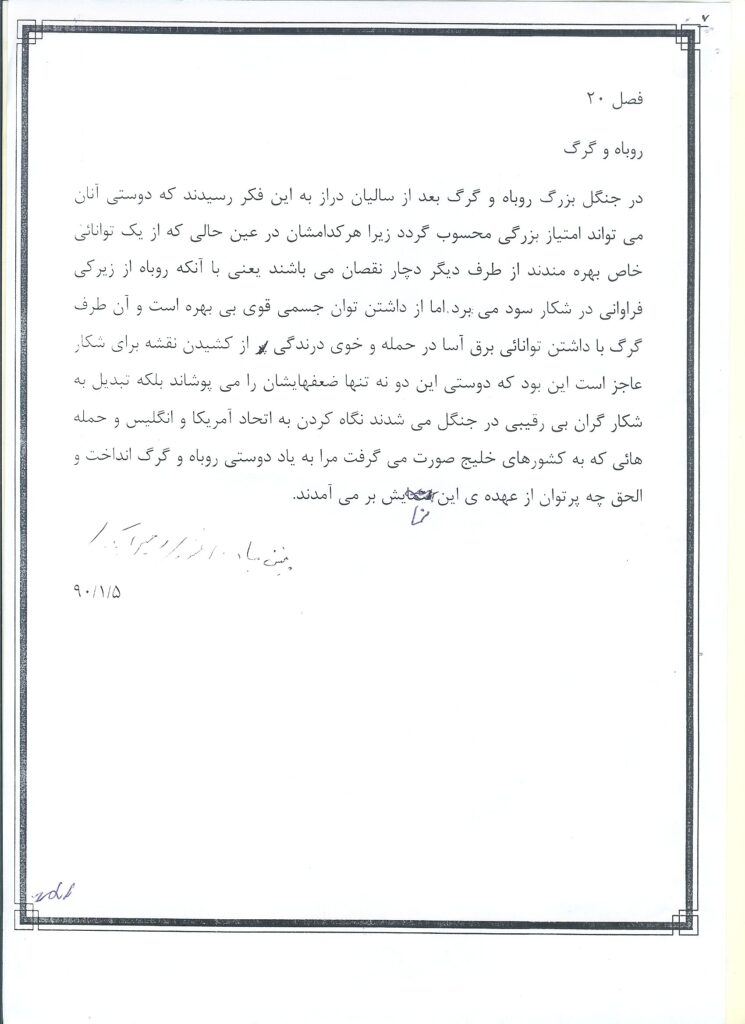 ۷
فصل ۲۰
روباه و گرگ
در جنگل بزرگ روباه و گرگ بعد از سالیان دراز به این فکر رسیدند که دوستی آنان
می تواند امتیاز بزرگی محسوب گردد زیرا هرکدامشان در عین حالی که از یک توانائی
خاص بهره مندند از طرف دیگر دچار نقصان می باشند یعنی با آنکه روباه از زیرکی
فراوانی در شکار سود می برد.اما از داشتن توان جسمی قوی بی بهره است و آن طرف
گرگ با داشتن توانائی برق آسا در حمله و خوی درندگی از کشیدن نقشه برای شکار
عاجز است این بود که دوستی این دو نه تنها ضعفهایشان را می پوشاند بلکه تبدیل به
شکار گران بی رقیبی در جنگل می شدند نگاه کردن به اتحاد آمریکا و انگلیس و حمله
هائی که به کشورهای خلیج صورت می گرفت مرا به یاد دوستی روباه و گرگ انداخت و
الحق چه پرتوان از عهده ی این یش بر می آمدند.
نما
۹۰/۱/۵